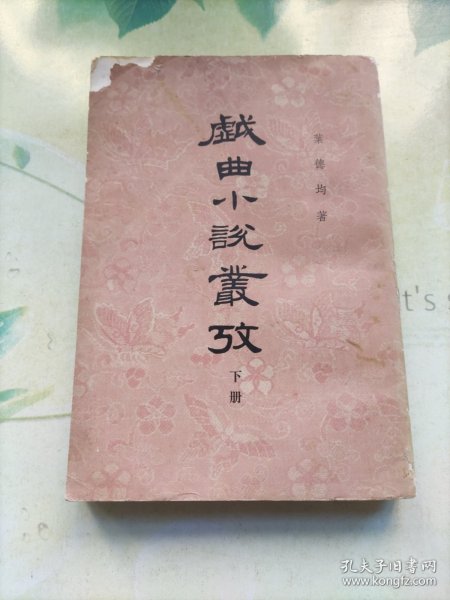 戯曲小説叢攷
下册
葉德均著
t's s
孔夫子旧书网
www.kongfz.com